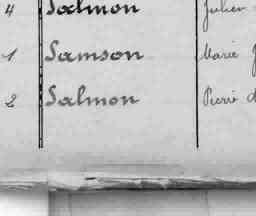 4 Salmon Julien
1 Samson Marie
2 Salmon Pierre